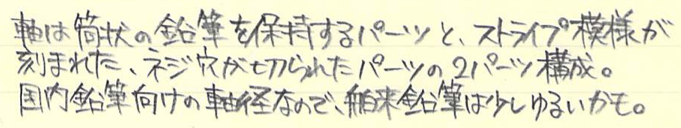 軸は筒状の鉛筆を保持するパーツと、ストライプ模様が
刻まれた、ネジ穴が切られたパーツの2パーツ構成。
国内鉛筆向けの軸径なので、舶来鉛筆は少しゆるいかも。